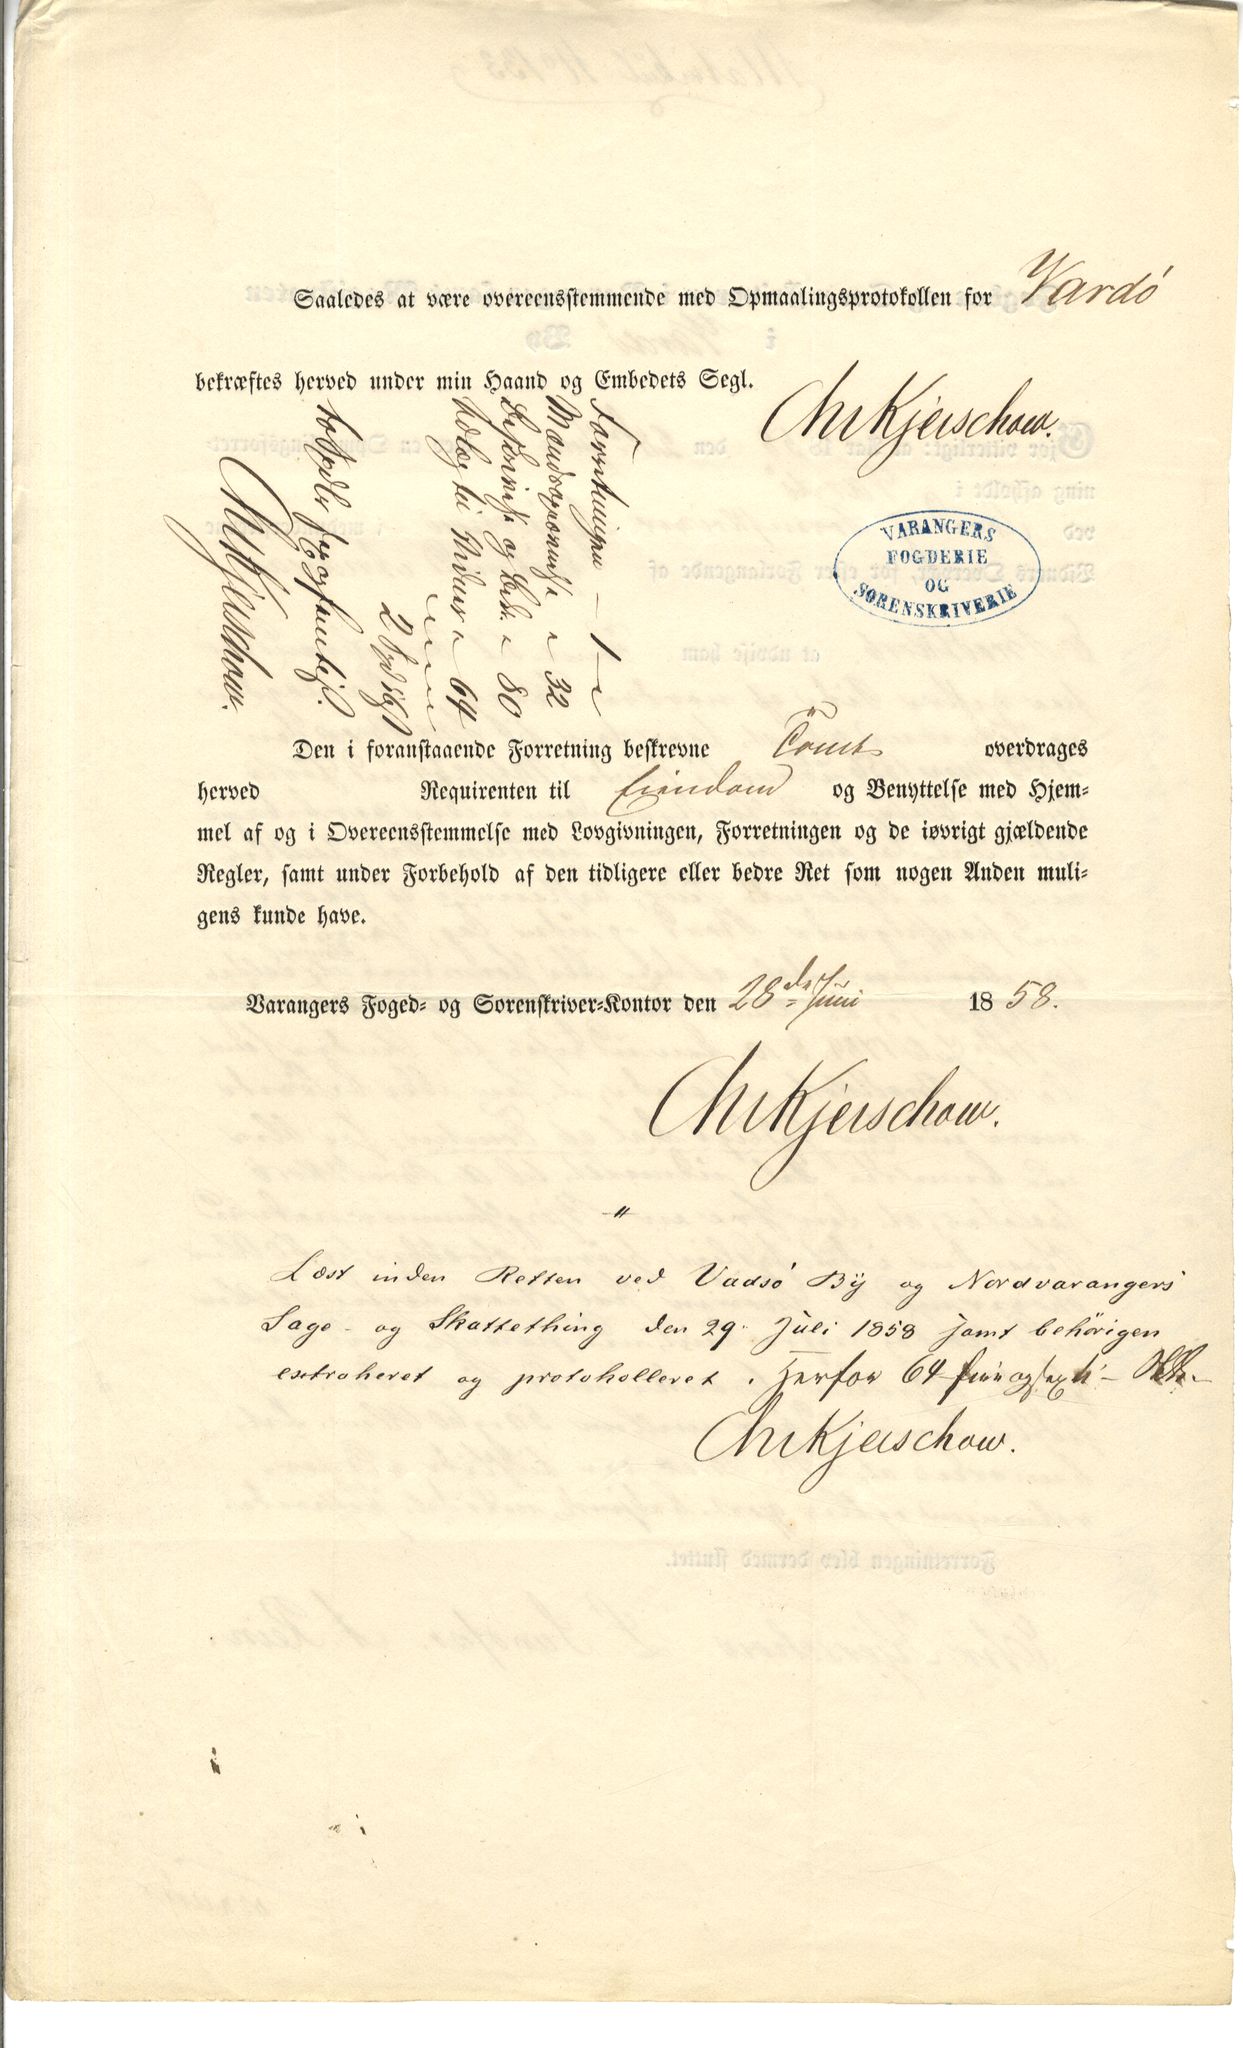 Saaledes at være overeensstemmende med Opmaalingsprotokollen for Vardö
bekræftes herved under min Haand og Embedets Segl.
ChrKjerschow.
VARANGERS
FOGDERIE
OG
SORENSKRIVERIE
Forretningen - 1 -
32
og 80
64
2
ChrKjerschow.
Den i foranstaaende Forretning beskrevne Tomt overdrages
herved Requirenten til Eiendom og Benyttelse med Hjem-
mel af og i Overeensstemmelse med Lovgivningen, Forretningen og de iøvrigt gjældende
Regler, samt under Forbehold af den tidligere eller bedre Ret som nogen Anden muli-
gens kunde have.
Varangers Foged- og Sorenskriver-Kontor den 28de Juni 1858.
ChrKjerschow.
"
Læst inden Retten ved Vadsö By og Nordvarangers
Sage- og Skattething den 29. Juli 1858 samt behörigen
extraheret og protokolleret. Herfor 64 fire og sexti -
ChrKjerschow.